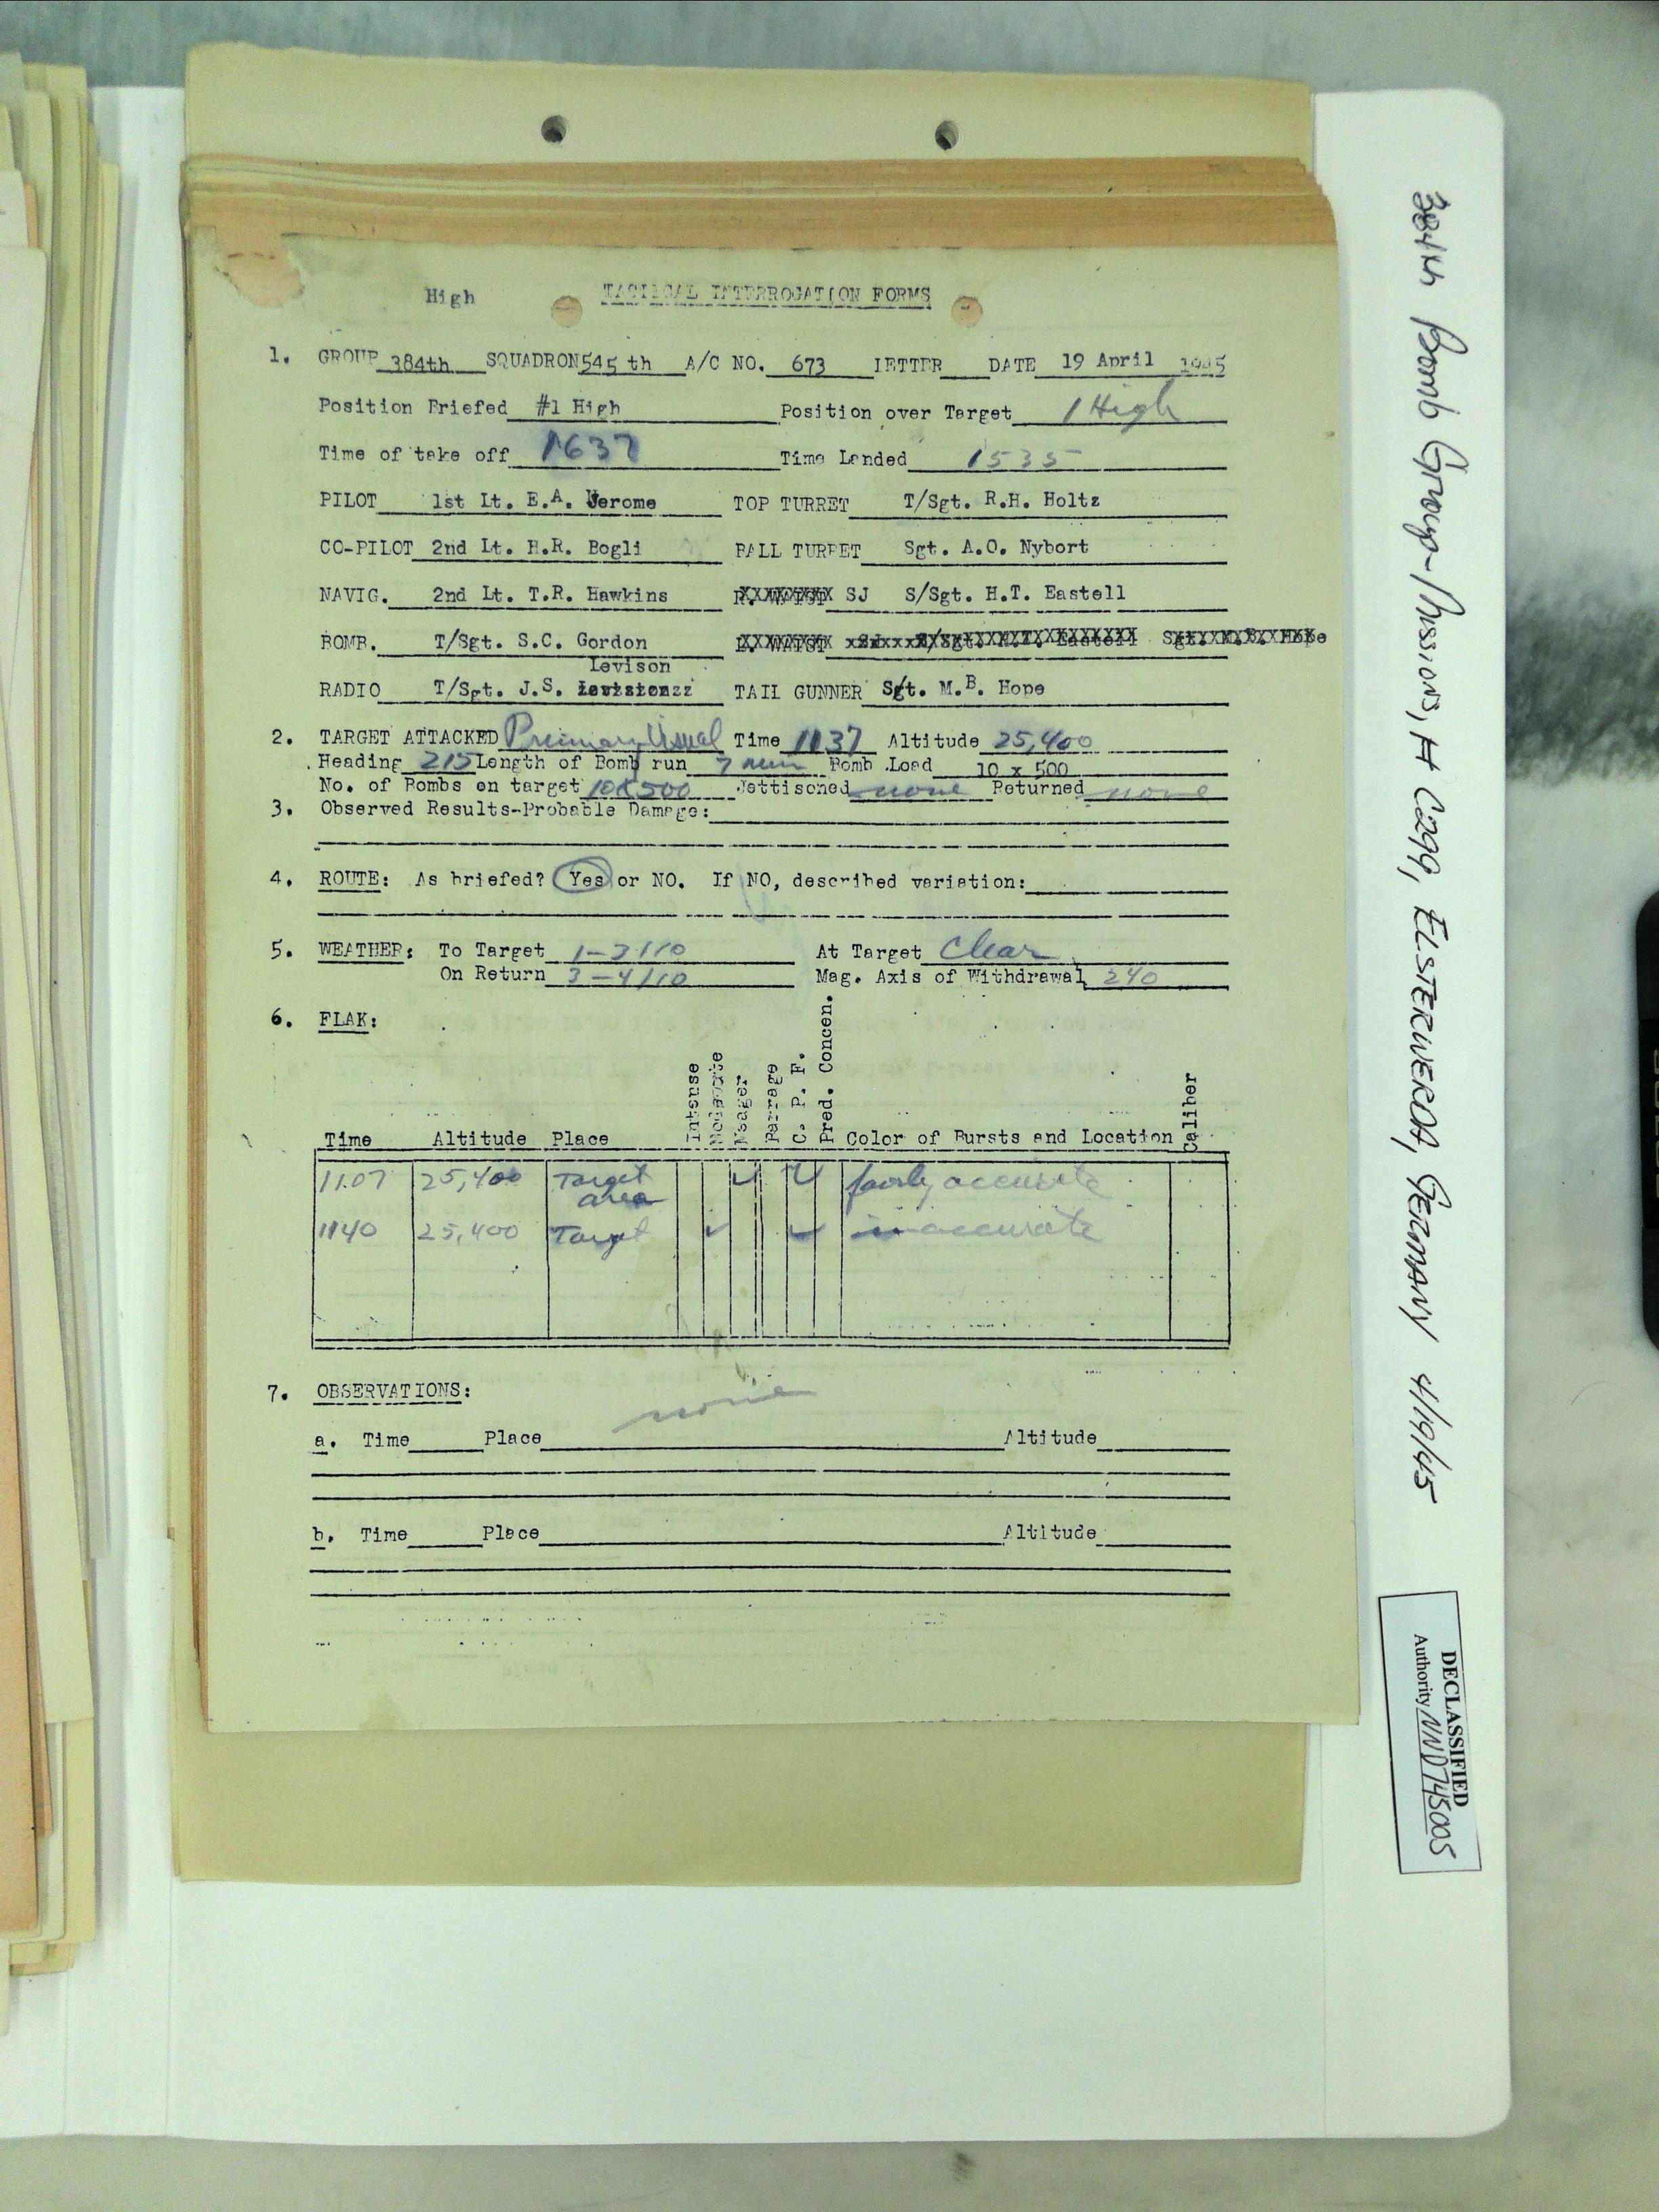 High TACTICAL INTERROGATION FORMS
1. GROUP 384th SQUADRON 545 th A/C NO. 673 LETTER DATE 19 April 1945
Position Briefed #1 High Position over Target 1 High
Time of take off Time Landed 1535
PILOT 1st Lt. E.A. Jerome TOP TURRET T/Sgt. R.H. Holtz
CO-PILOT 2nd Lt. H.R. Bogli BALL TURRET Sgt. A.O. Nybort
NAVIG. 2nd Lt. T.R. Hawkins R. WAIST SJ S/Sgt. H.T. Eastell
BOMB. T/Sgt. S.C. Gordon L. WAIST
Levison
RADIO T/Sgt. J.S. TAIL GUNNER Sgt. M.B. Hope
2. TARGET ATTACKED Primary Visual Time 1137 Altitude 25,400
Heading 215 Length of Bomb run 7 min Bomb Load 10 x 500
No. of Bombs on target 10x500 Jettisoned none Returned none
3. Observed Results-Probable Damage:
4. ROUTE: As briefed? Yes or NO. If NO, described variation:
5. WEATHER: To Target 1-3/10 At Target Clear
On Return 3-4/10 Mag. Axis of Withdrawal 240
6. FLAK:
Time Altitude Place Intense Moderate Meager Barrage C. P. F. Pred. Concen. Color of Bursts and Location Caliber
1107 25,400 Target area ✓ ✓ fairly accurate
1140 25,400 Target ✓ ✓ inaccurate
7. OBSERVATIONS:
none
a. Time Place Altitude
b. Time Place Altitude
384th Bomb Group-Missions, # C299, ELSTERWERDA, GERMANY 4/19/45
DECLASSIFIED
Authority NND745005